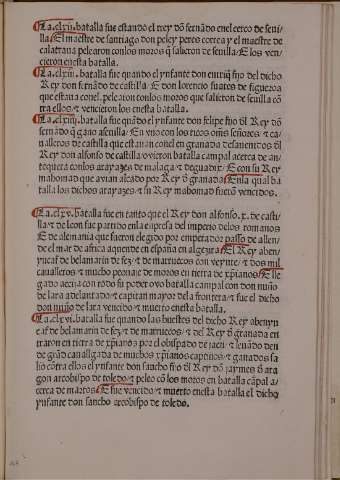 La .clxij. batalla fue estando el rey dõ fernãdo enel cerco de seui-
lla. El maestre de santiago don peley peres correa y el maestre de
calatraua pelearon conlos moros q̃ salieron de seuilla. E los ven-
cieron enesta batalla.
La .clxiij. batalla fue quando el ynfante don enrriq̃ fijo del dicho
Rey don fernãdo de castilla. E don lorencio suares de figueroa
que estaua conel. pelearon conlos moros que salieron de seuilla cõ
tra ellos ⁊ vencieron los enesta batalla.
La .clxiiij. batalla fue quãdo el ynfante don felipe fijo dl̃ Rey dõ
fernãdo q̃ gano aseuilla. En vno con los ricos om̃s señores ⁊ ca-
ualleros de castilla que estauan conel en granada desauenidos dl̃
Rey don alfonso de castilla ouieron batalla campal acerca de an-
tequera conlos arayazes de malaga ⁊ deguadix. E con su Rey
mahomad que auian alçado por Rey õ granada. Enla qual ba
talla los dichos arayazes ⁊ su Rey mahomad fuerõ vencidos.
La .clxv. batalla fue en tanto que el Rey don alfonso .x. de casti-
lla ⁊ de leon fue partido enla enpresa del imperio delos romanos
E de alemania que fueron elegido por emperador passo de allen
de el mar de africa aquende en españa en algezira. El Rey aben
yucaf de belamarin de fez ⁊ de marruecos con veynte ⁊ dos mil
caualleros ⁊ mucho peonaie de moros en tierra de xp̃ianos. E lle
gado aecija con todo su poder ouo batalla campal con don nuño
de lara adelantado ⁊ capitan mayor dela frontera ⁊ fue el dicho
don nuño de lara vencido ⁊ muerto enesta batalla.
La .clxvi. batalla fue quando las huestes del dicho Rey abenyu
caf de belamarin de fez ⁊ de marruecos ⁊ del Rey õ granada en
traron en tierra de xp̃ianos por el obispado de jaen ⁊ leuãdo den
de grãd caualgada de muchos xp̃ianos captiuos ⁊ ganados sa
lio cõtra ellos el ynfante don sancho fijo dl̃ Rey dõ jaymes õ ara
gon arcobispo de toledo ⁊ peleo cõ los moros en batalla cãpal a-
cerca de martos. E fue vencido ⁊ muerto enesta batalla el dicho
ynfante don sancho arcobispo de toledo.